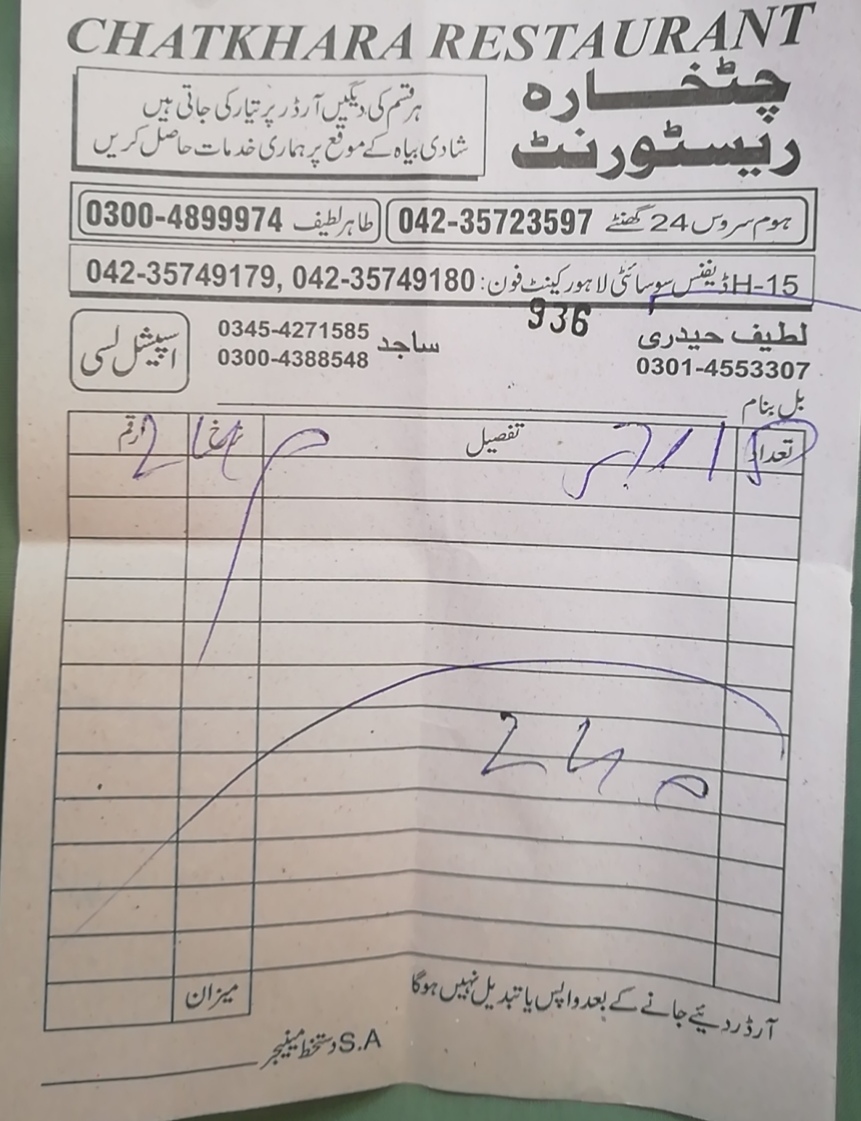 CHATKHARA RESTAURANT
چٹخارہ
ریسٹورنٹ
ہر قسم کی دیگیں آرڈر پر تیار کی جاتی ہیں
شادی بیاہ کے موقع پر ہماری خدمات حاصل کریں
ہوم سروس 24 گھنٹے 042-35723597
طاہر لطیف 0300-4899974
H-15 ڈیفنس سوسائٹی لاہور کینٹ فون: 042-35749179, 042-35749180
936
لطیف حیدری
0301-4553307
ساجد 0345-4271585
0300-4388548
اسپیشل لسی
بل بنام
تعداد تفصیل نرخ رقم
240
میزان
آرڈر دیئے جانے کے بعد واپس یا تبدیل نہیں ہوگا
S.A دستخط مینیجر